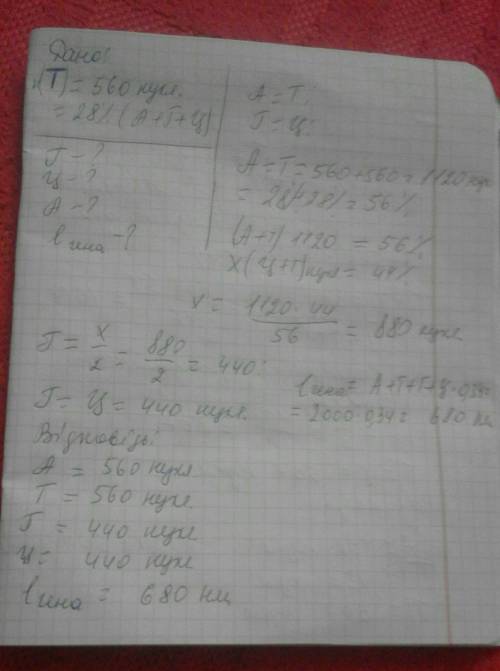 Дано:
(Т) = 560 нукл.
= 28% (А+Г+Ц)
Г - ?
Ц - ?
А - ?
l гена - ?
А = Т;
Г = Ц;
А = Т = 560+560 = 1120 нукл
= 28%+28% = 56%
(А+Т) 1120 = 56%
х (Ц+Г) нукл = 44%
х = 1120 · 44 / 56 = 880 нукл.
Г = х/2 = 880/2 = 440;
Г = Ц = 440 нукл.
l гена = А+Т+Г+Ц · 0,34 =
= 2000 · 0,34 = 680 нм
Відповідь:
А = 560 нукл
Т = 560 нукл.
Г = 440 нукл
Ц = 440 нукл
l гена = 680 нм